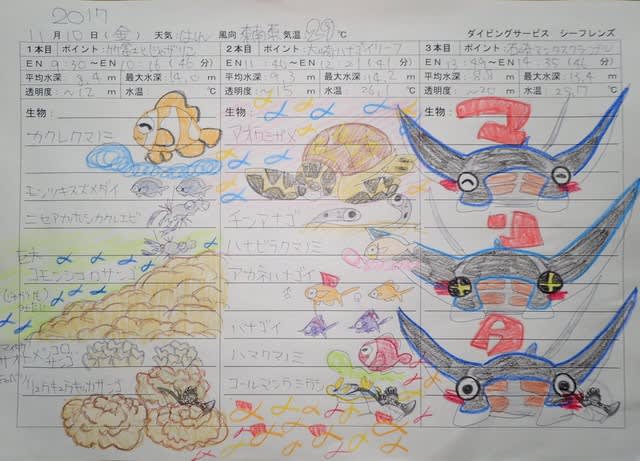 2017
11月10日(金) 天気: はれ 風向 気温 ℃ ダイビングサービス シーフレンズ
1本目 ポイント:
EN 9:30~EN 10:16 (46分)
平均水深: 8.4m 最大水深: 14.0m
透明度: ~12m 水温 ℃
生物:
カクレクマノミ
モンツキスズメダイ
ニセアカホシカクレエビ
コモンシコロサンゴ
リュウキュウキッカサンゴ
2本目 ポイント: 大崎ハナゴイリーフ
EN 11:40~EN 12:21 (41分)
平均水深: 9.3m 最大水深: 14.2m
透明度: ~15m 水温 26.1℃
生物:
アオウミガメ
チンアナゴ
ハナビラクマノミ
アカネハナゴイ
♂ ♀
ハナゴイ
ハマクマノミ
コールマンウミウシ
3本目 ポイント: 石崎マンタスクランブル
EN 13:49~EN 14:35 (46分)
平均水深: 8.8m 最大水深: 13.4m
透明度: ~20m 水温 25.7℃
生物:
マ
ン
タ